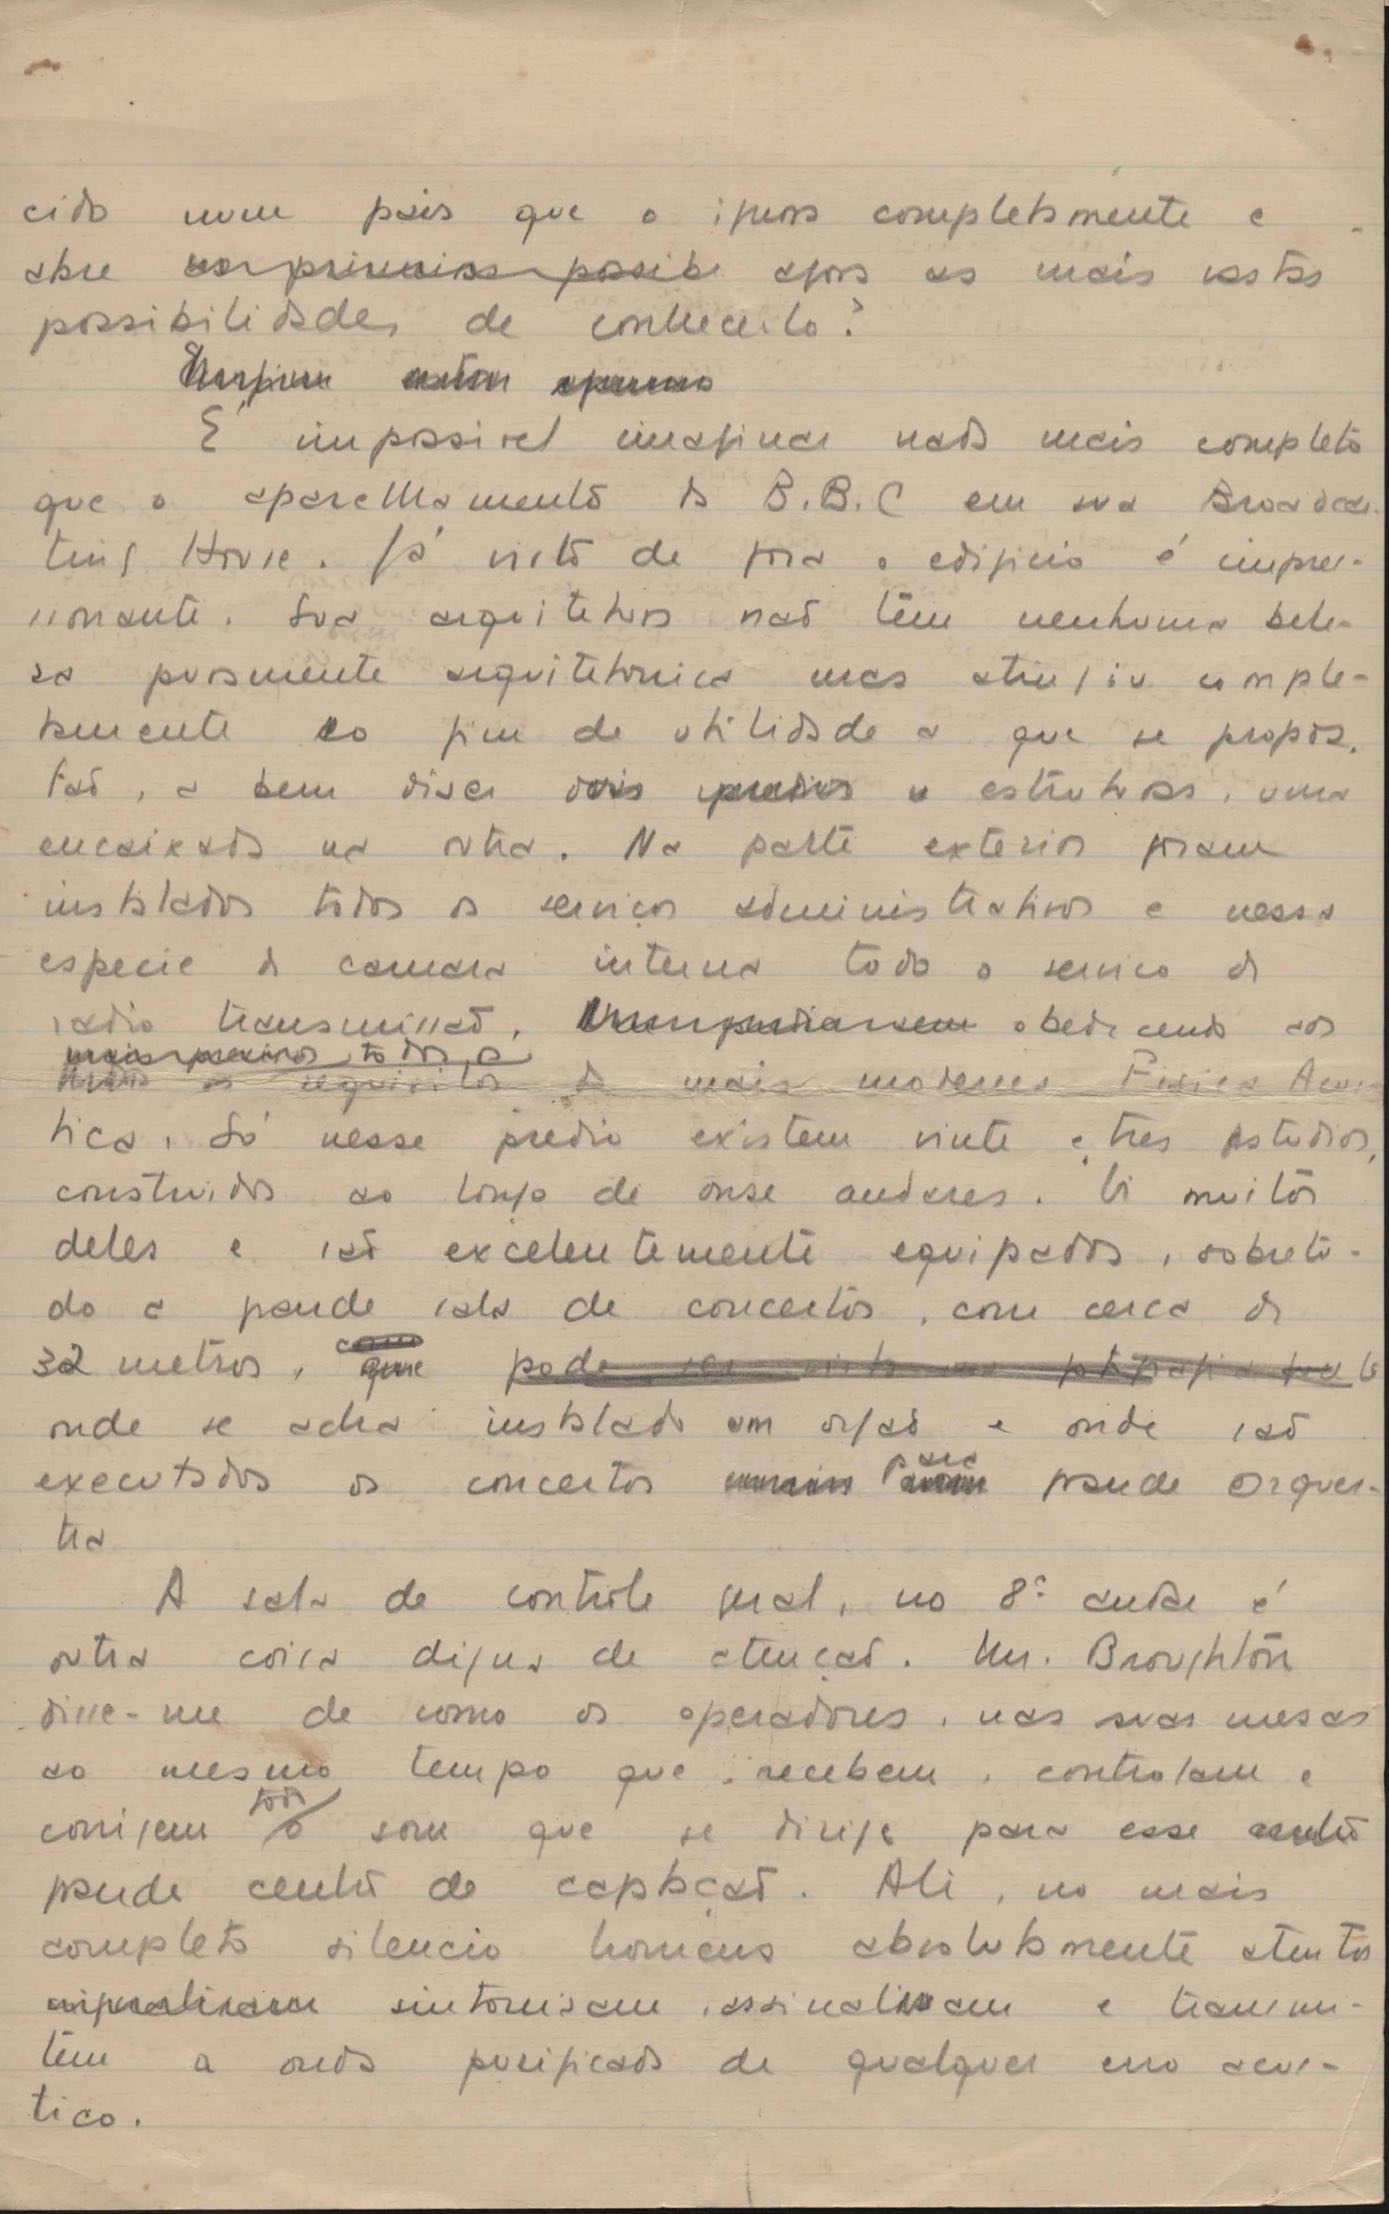 cido num pais que o ignora completamente e
abre agora as mais vastas
possibilidades de conhece-lo?
É impossivel imaginar nada mais completo
que o aparelhamento da B.B.C em sua Broadcas-
ting House. Já visto de fora o edificio é impres-
sionante. Sua arquitetura não têm nenhuma bele-
sa puramente arquitetonica mas atingiu comple-
tamente ao fim de utilidade a que se propos.
São, a bem diser duas estruturas, uma
encaixada na outra. Na parte exterior foram
instalados todos os serviços administrativos e nessa
especie de camara interna todo o serviço de
radio transmissão, obedecendo aos
mais todos os
requisitos da mais moderna Fisica Acus-
tica. Só nesse predio existem vinte e tres estudios,
construidos ao longo de onse andares. Vi muitos
deles e são excelentemente equipados, sobretu-
do a grande sala de concertos, com cerca de
32 metros, que pode ser vista na fotografia
onde se acha instalado um orgão e onde são
executados os concertos para grande orques-
tra
A sala de controle geral, no 8º andar é
outra coisa digna de atenção. Mr. Broughton
disse-me de como os operadores, nas suas mesas
ao mesmo tempo que recebem, controlam e
corrigem todo o som que se dirige para esse
grande centro de captação. Ali, no mais
completo silencio homens absolutamente atentos
sintonisam, assinalam e transmi-
tem a onda purificada de qualquer erro acus-
tico.